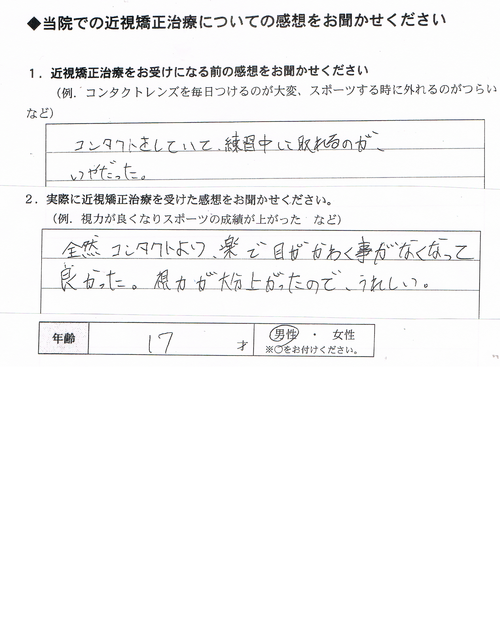 ◆当院での近視矯正治療についての感想をお聞かせください
1．近視矯正治療をお受けになる前の感想をお聞かせください
（例．コンタクトレンズを毎日つけるのが大変、スポーツする時に外れるのがつらい
など）
コンタクトをしていて、練習中に取れるのが、
いやだった。
2．実際に近視矯正治療を受けた感想をお聞かせください。
（例．視力が良くなりスポーツの成績が上がった　など）
全然コンタクトより、楽で目がかわく事がなくなって
良かった。視力が大分上がったので、うれしい。
年齢 17 才 男性 ・ 女性
※〇をお付けください。